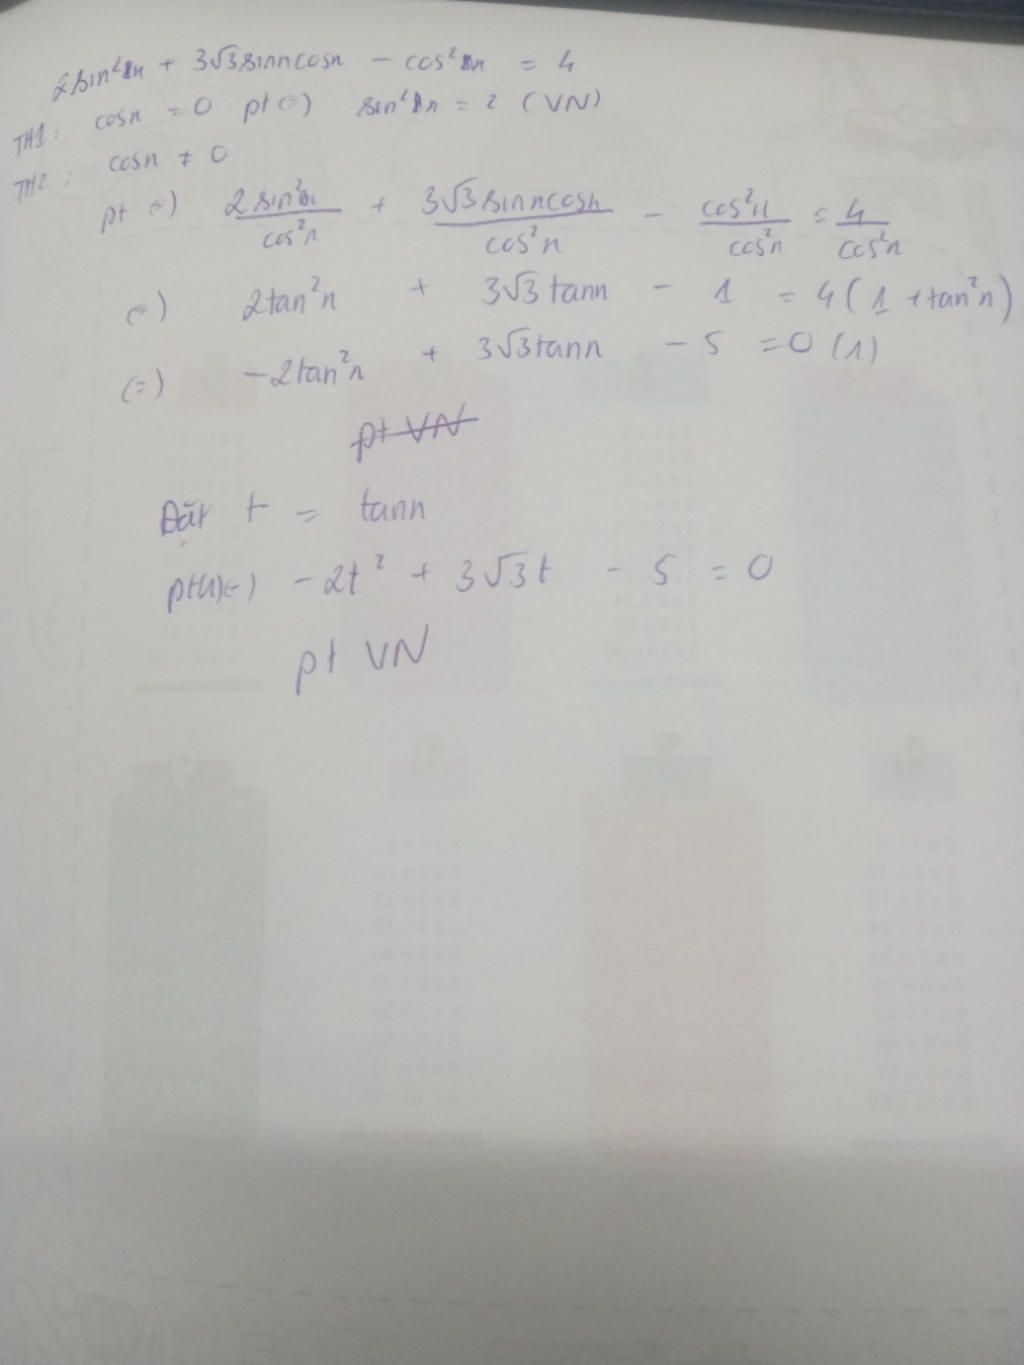 2sin²n + 3√3sinncosn - cos²n = 4
TH1: cosn = 0 pt(=) sin²n = 2 (VN)
TH2: cosn ≠ 0
pt (=) 2sin²n/cos²n + 3√3sinncosn/cos²n - cos²n/cos²n = 4/cos²n
(=) 2tan²n + 3√3tann - 1 = 4(1 + tan²n)
(=) -2tan²n + 3√3tann - 5 = 0 (1)
pt VN
Đặt t = tann
pt(1)(=) -2t² + 3√3t - 5 = 0
pt VN